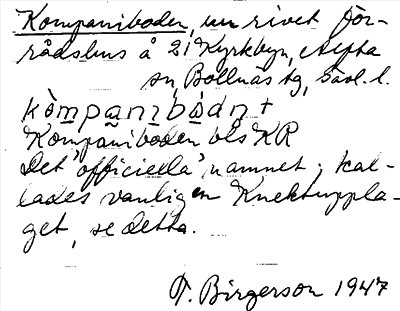 Kompaniboden, nu rivet för-
rådshus å 21 Kyrkbyn, Alfta
sn, Bollnäs tg, Gävl. l.
kòmpanibòdn+
Kompaniboden bls KR
Det "officiella" namnet; kal-
lades vanligen Knektuppla-
get, se detta.
T. Birgerson 1947